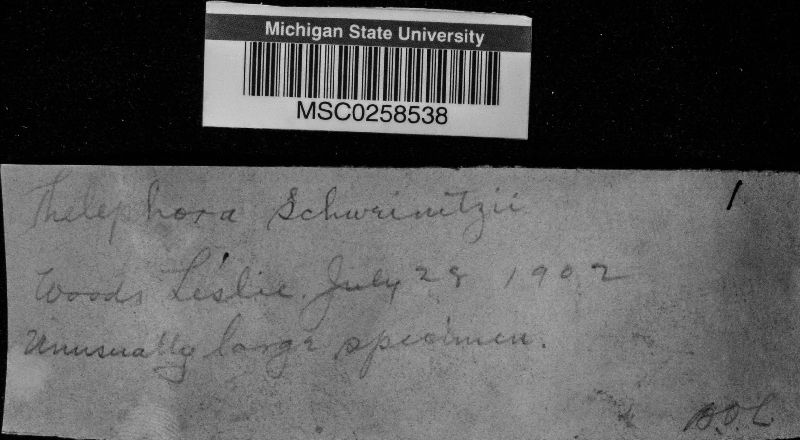 Michigan State University
MSC0258538
1
Thelephora Schweinitzii
Woods Leslie. July 28 1902
Unusually large specimen.
B.O.L.